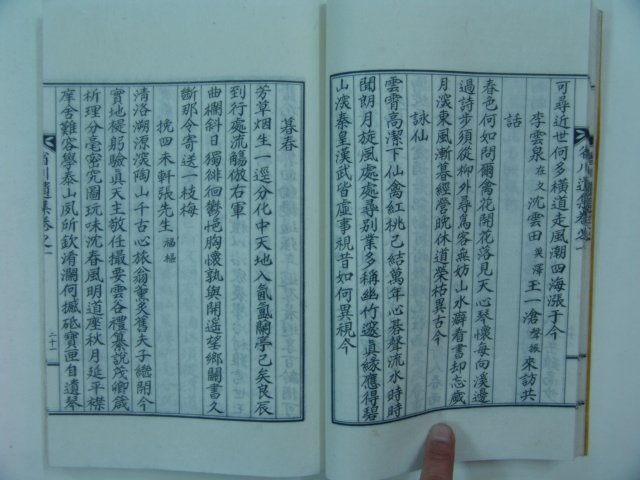 可尋近世何多橫道走風潮四海漲于今
李雲泉在文沈雲田英澤王一滄聲振來訪共
話
春色何如問爾禽花開花落見天心琴懷每向溪邊
過詩步須從柳外尋爲客無妨山水癖看書却忘歲
月深東風漸暮經營晩休道榮枯異古今
詠仙
雲霄高潔下仙禽紅桃已結萬年心碁聲流水時時
聞朗月旋風處處尋別業多稱幽竹邃眞緣應得碧
山深秦皇漢武皆虛事視昔如何異視今
暮春
芳草烟生一逕分化中天地入氤氳蘭亭已矣良辰
到行處流觴倣右軍
曲欄斜日獨徘徊鬱悒胸懷孰與開遙望鄕關書久
斷那令寄送一枝梅
挽四未軒張先生福樞
淸洛溯源深陶山千古心旅翁薰炙舊夫子繼開今
實地模躬驗眞天主敬任撮要雲各禮纂說茂卿箴
析理分毫密究圖玩味沈春風明道座秋月延平襟
庠舍難容學泰山夙所欽淆瀾何撼砥寶匣自遺琴
省川遺集卷之一
二十一